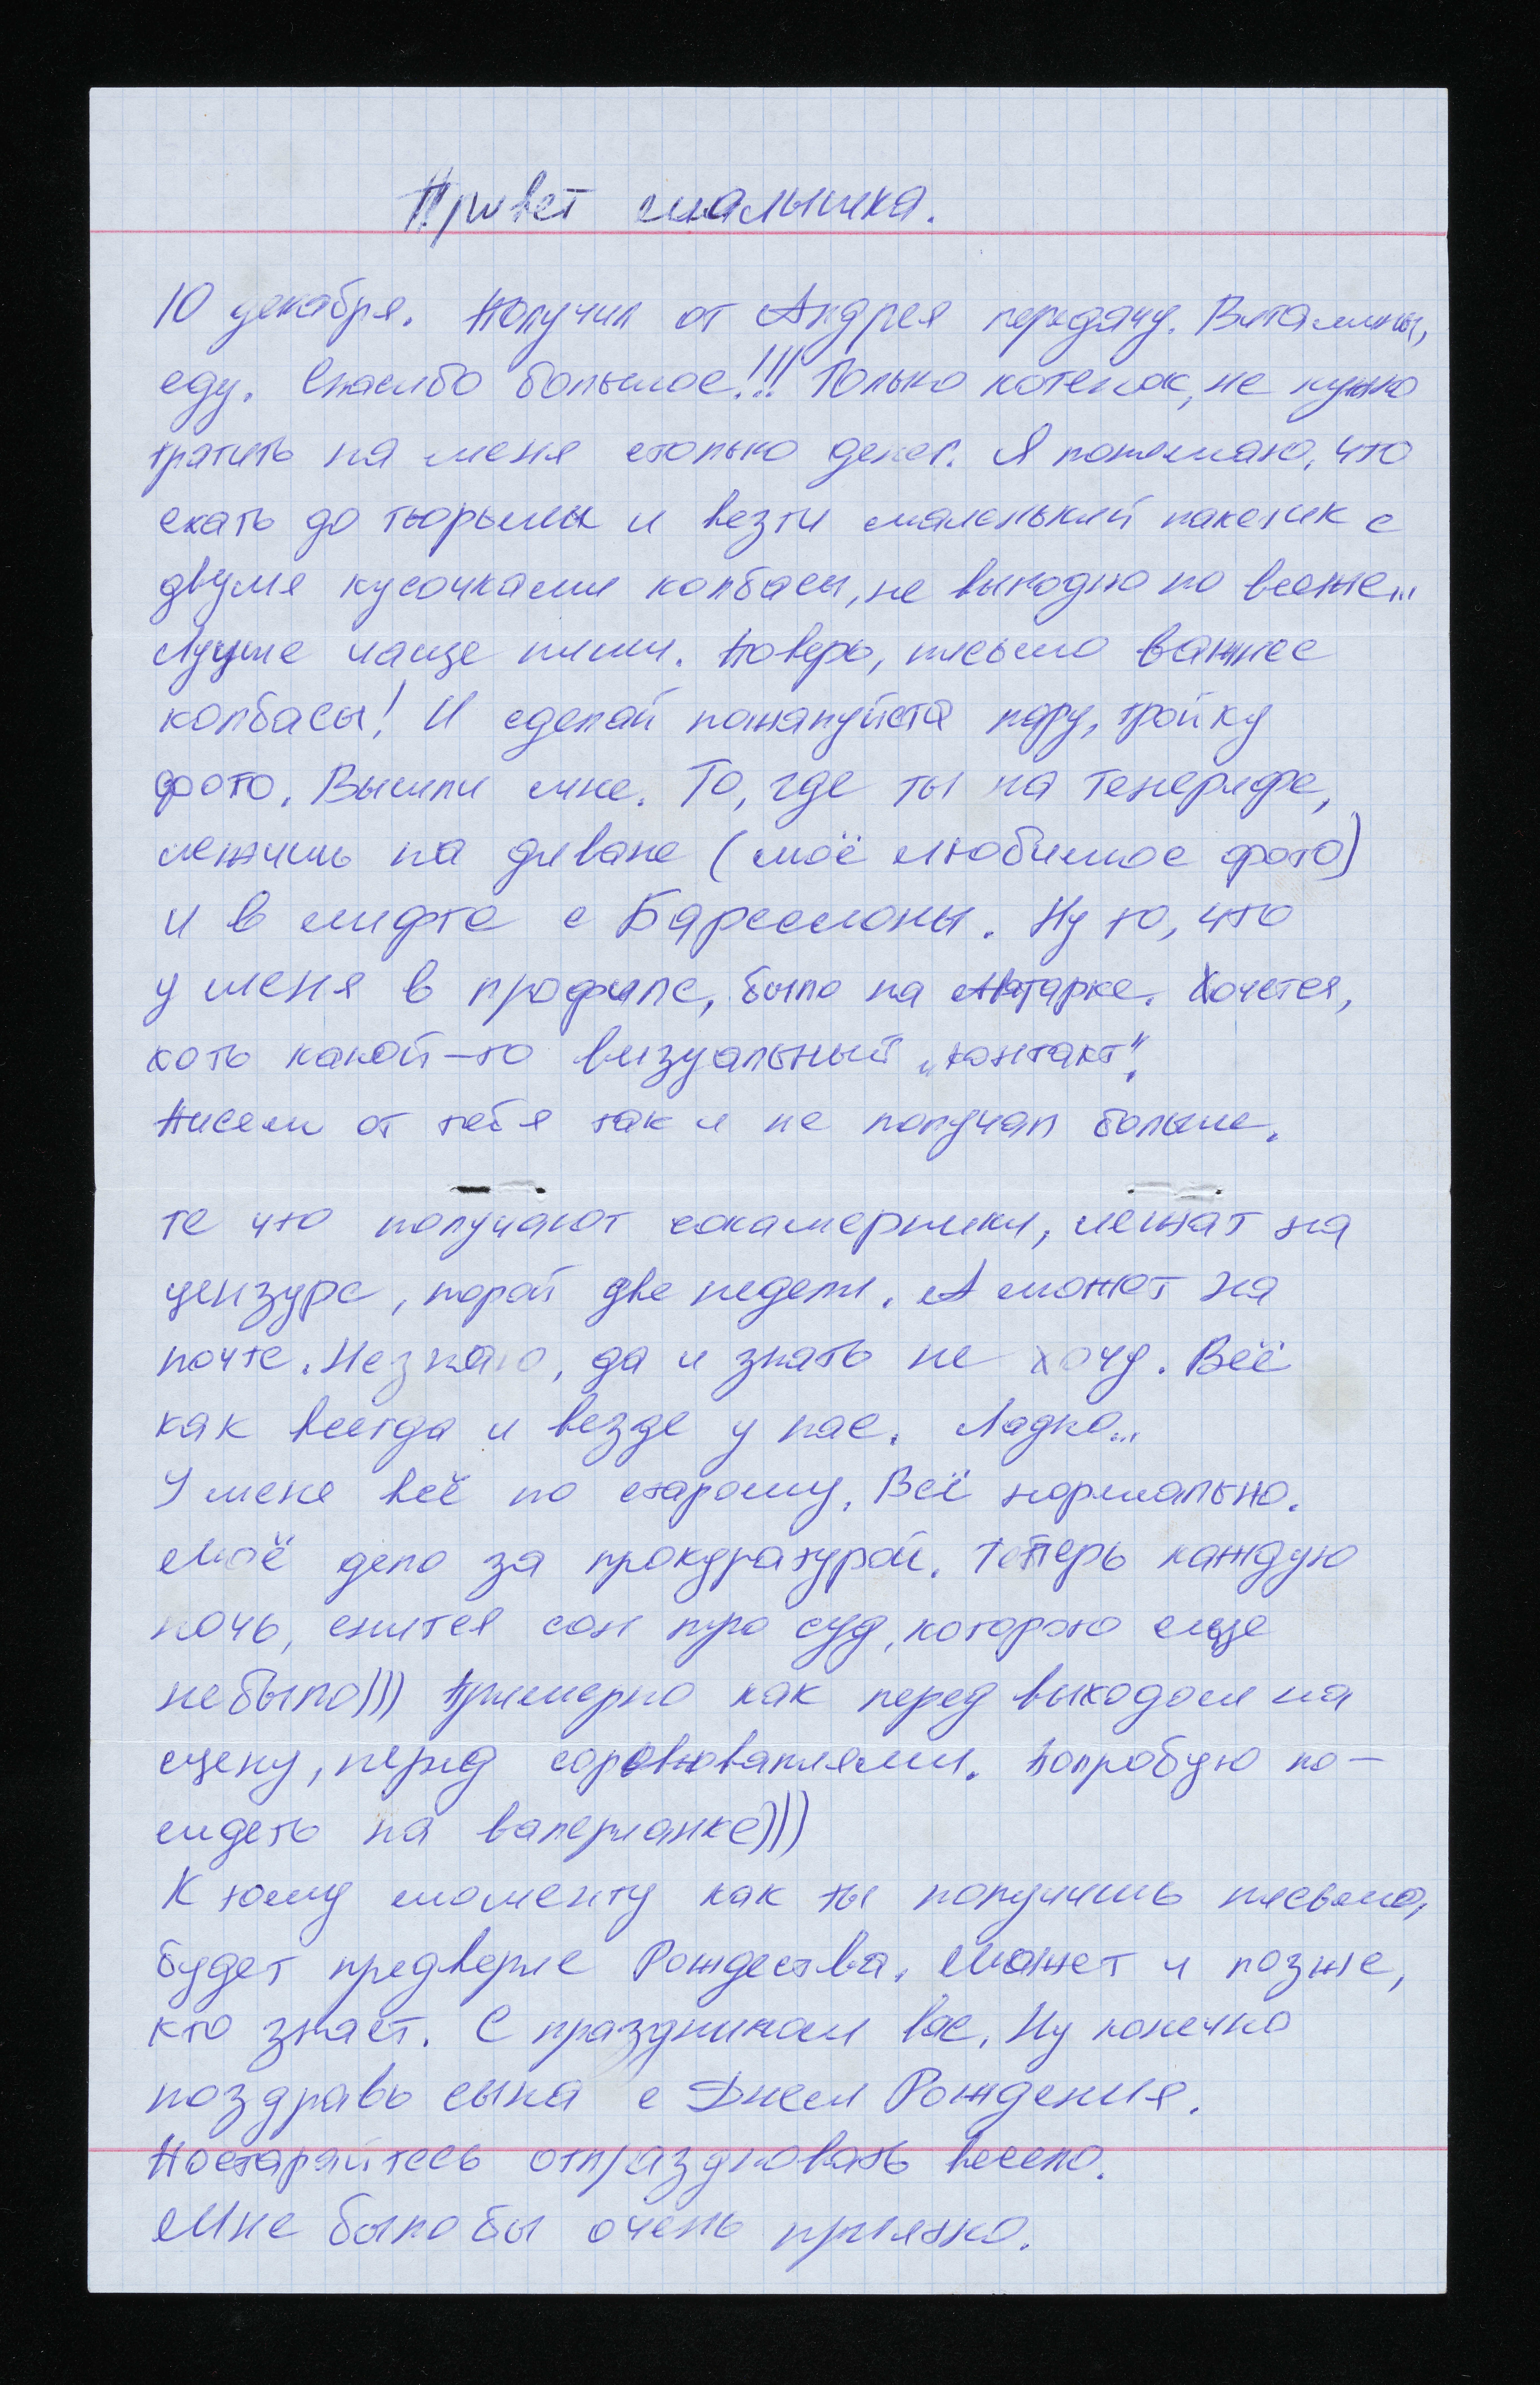 Привет малышка.
10 декабря. Получил от Андрея передачу. Витамины,
еду. Спасибо большое!!! Только котенок, не нужно
тратить на меня столько денег. Я понимаю, что
ехать до тюрьмы и везти маленький пакетик с
двумя кусочками колбасы, не выгодно по всякие...
Лучше чаще пиши. Поверь, письмо важнее
колбасы! И сделай пожалуйста пару, тройку
фото. Вышли мне. То, где ты на Тенерифе,
лежишь на диване (моё любимое фото)
и в лифте с Барселоны. Ну то, что
у меня в профиле, было на Аватарке. Хочется,
хоть какой-то визуальный „контакт".
Писем от тебя так и не получал больше.
те что получают сокамерники, лежат на
цензуре, порой две недели. А может на
почте. Незнаю, да и знать не хочу. Всё
как всегда и везде у нас. Ладно...
У меня всё по старому. Всё нормально.
Моё дело за прокуратурой. Теперь каждую
ночь, снится сон про суд, которого еще
небыло))) Примерно как перед выходом на
сцену, перед соревнованиями. Попробую по-
сидеть на валерианке)))
К тому моменту как ты получишь письмо,
будет предверие Рождества. Может и позже,
кто знает. С праздником вас. Ну конечно
поздравь сына с Днем Рождения.
Постарайтесь отпраздновать весело.
Мне было бы очень приятно.